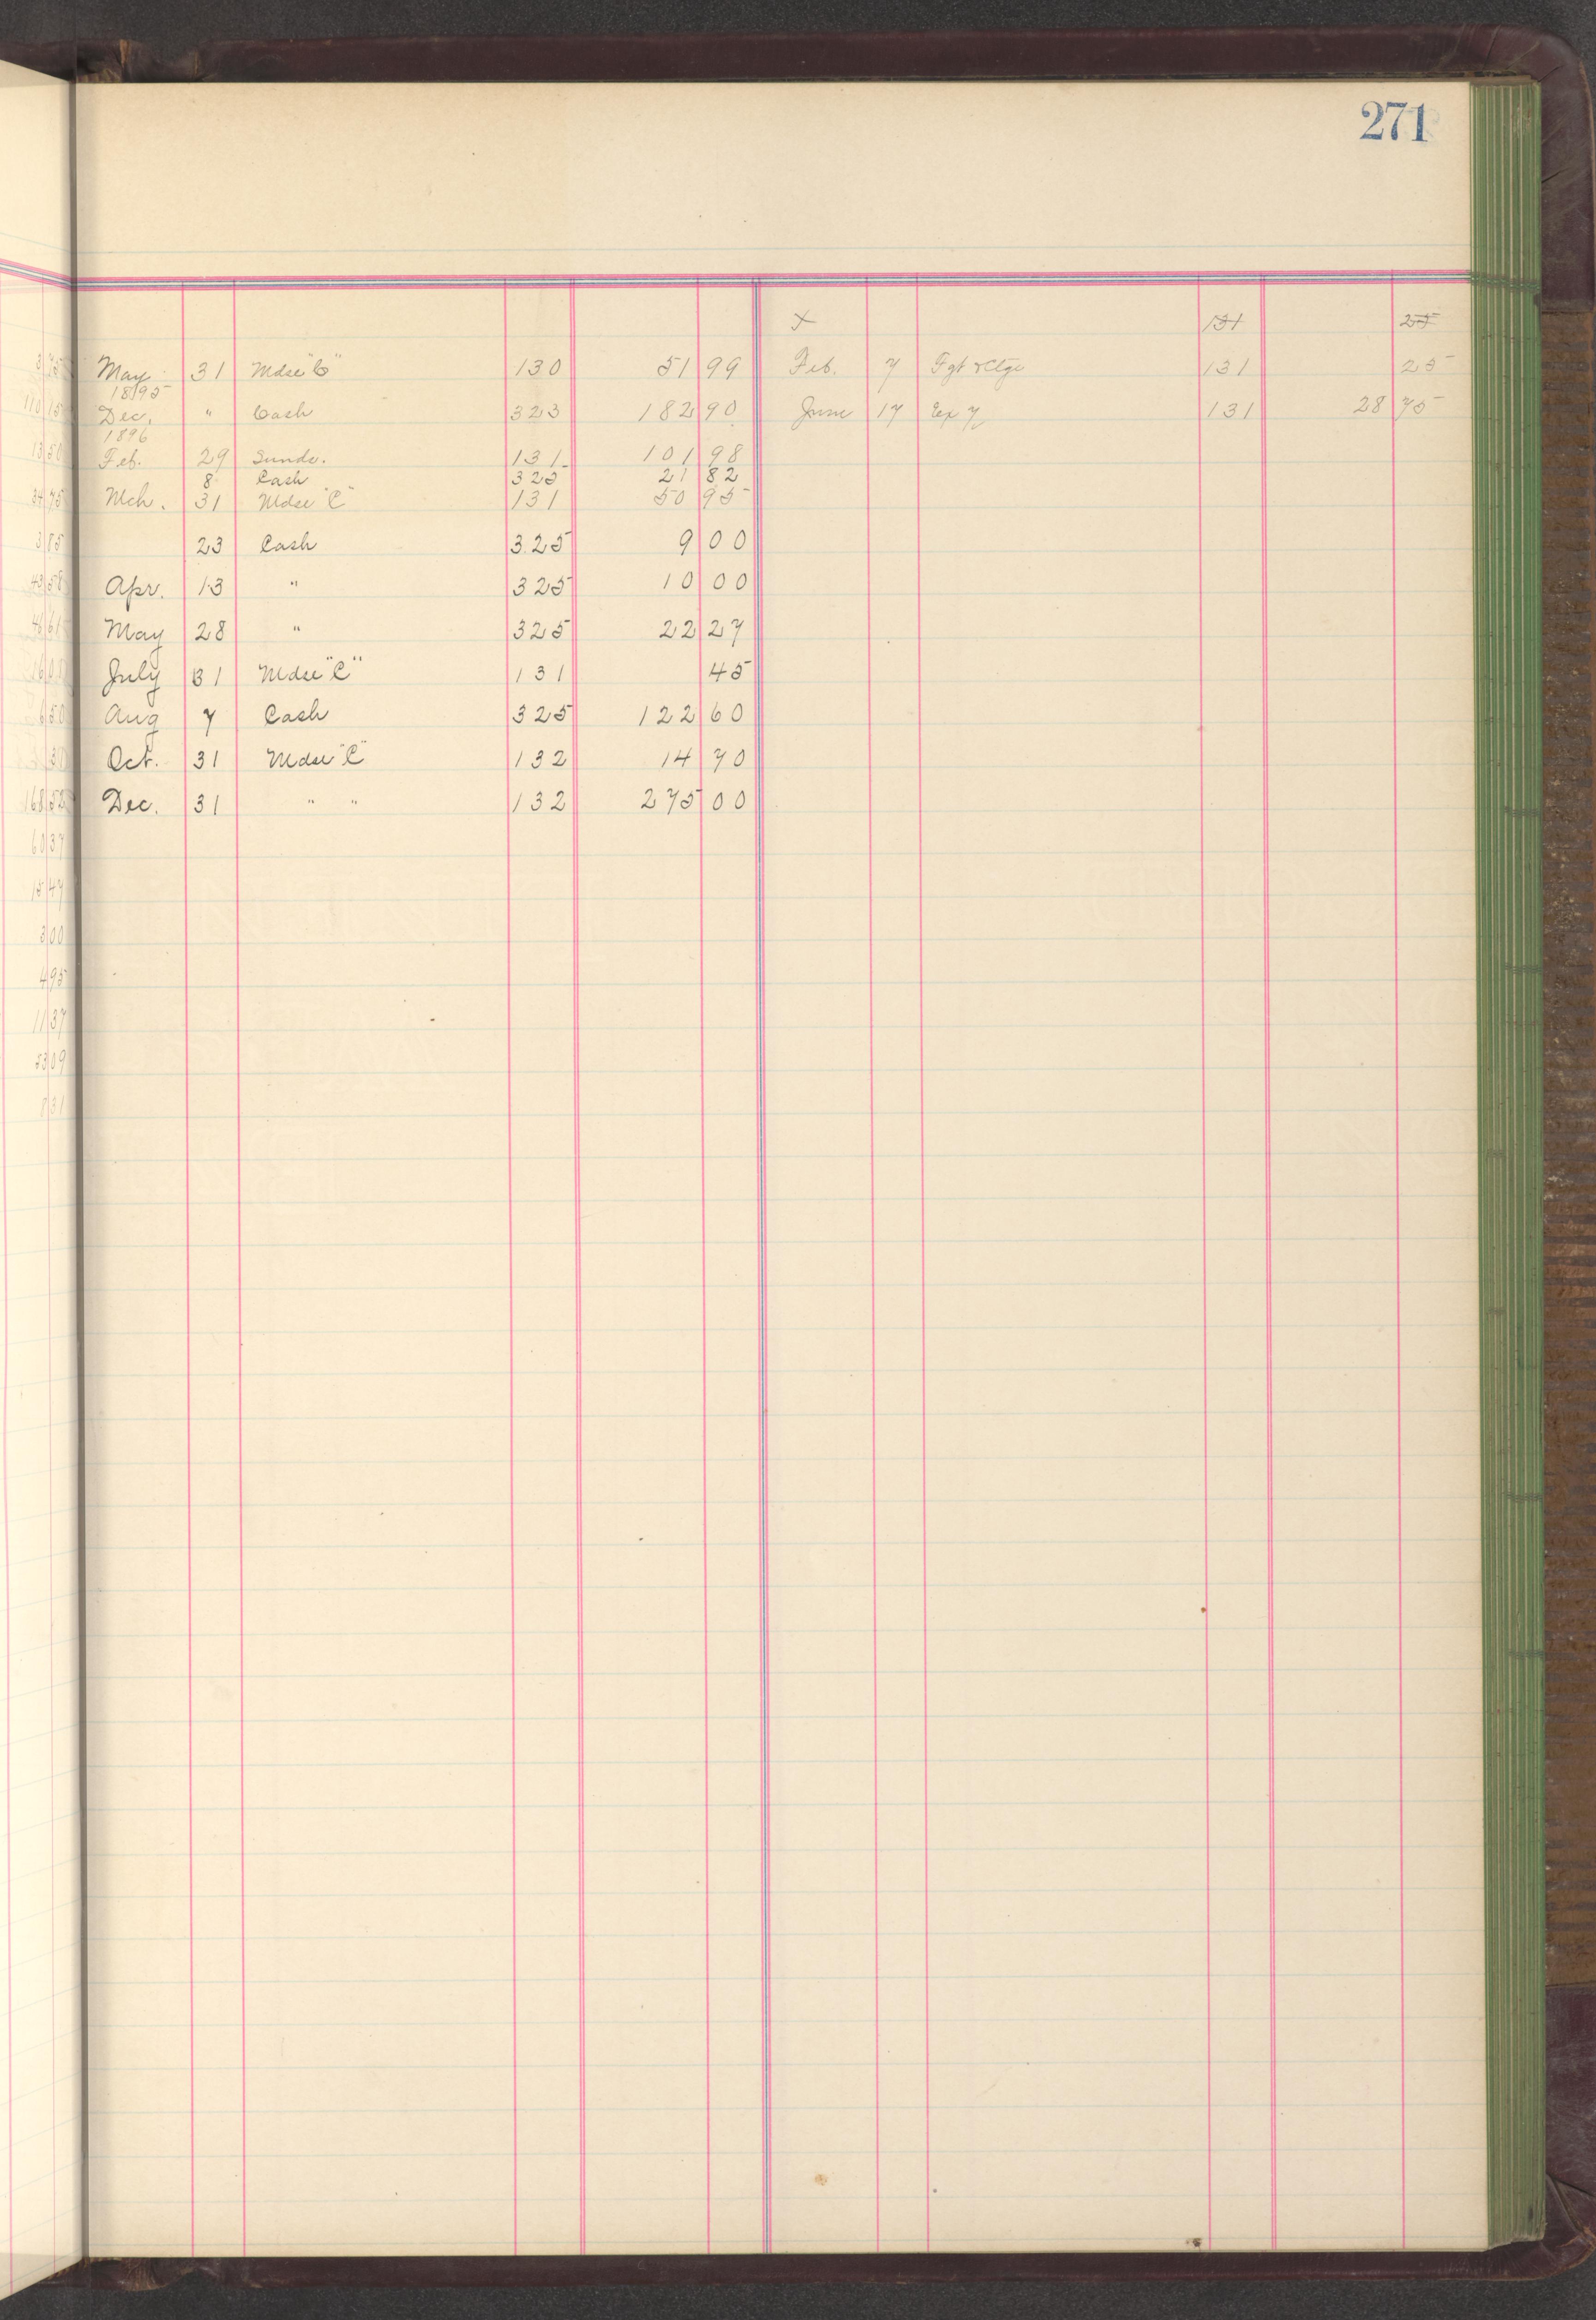 271
131 25
May 31 Mdse "C" 130 51 99 Feb. 7 Fgt & Ctge 131 25
1895
Dec. " Cash 323 182 90 June 17 Ex 131 28 75
1896
Feb. 29 Sunds. 131 101 98
8 Cash 325 21 82
Mch. 31 Mdse "C" 131 50 95
23 Cash 325 9 00
Apr. 13 " 325 10 00
May 28 " 325 22 27
July 31 Mdse "C" 131 45
Aug 7 Cash 325 122 60
Oct. 31 Mdse "C" 132 14 70
Dec. 31 " " 132 275 00
3 85
168 52
60 37
15 47
3 00
4 95
11 37
8 31